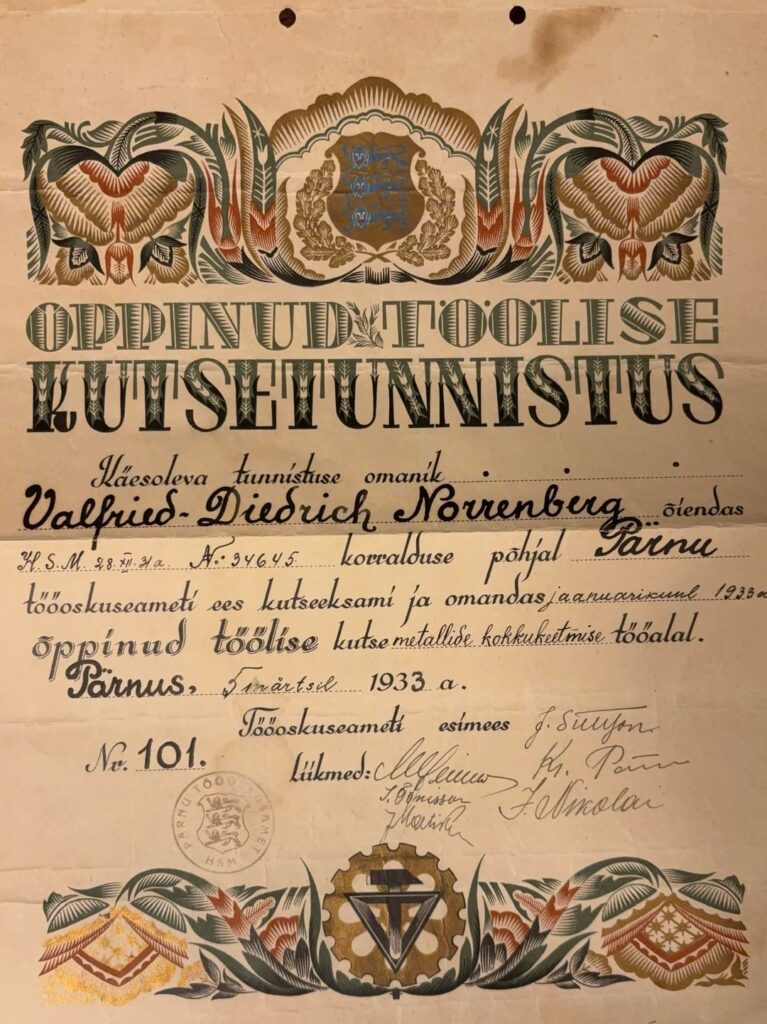 ÕPPINUD TÖÖLISE
KUTSETUNNISTUS
Käesoleva tunnistuse omanik
Valfried-Diedrich Norrenberg õiendas
H.S.M 28.XII.31a N: 34645 korralduse põhjal Pärnu
tööoskuseameti ees kutseeksami ja omandas jaanuarikuul 1933a
õppinud töölise kutse metallide kokkukeetmise tööalal.
Pärnus, 5 märtsil 1933 a.
Tööoskuseameti esimees
Nr. 101. Liikmed:
J. Tõnisson
J. Nikolai
PÄRNU TÖÖOSKUSAMET
HSM